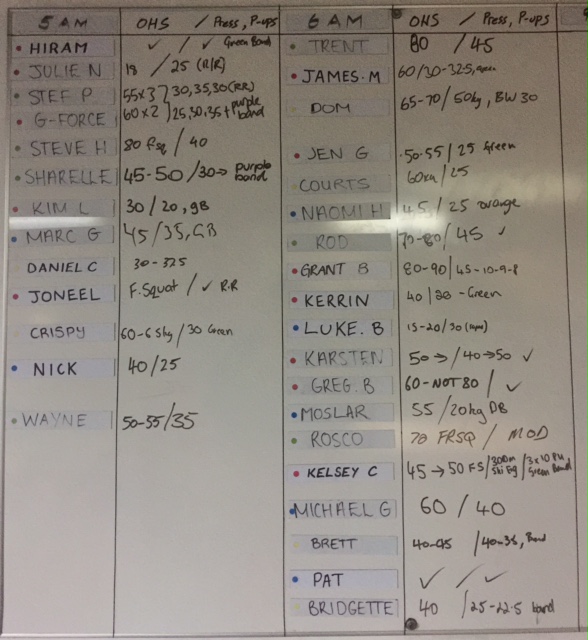 5 AM OHS / Press, P-ups
HIRAM ✓ / ✓ Green Band
JULIE N 18 / 25 (R/R)
STEF P. 55x3 } 30,35,30(RR)
G-FORCE 60x2 } 25,30,35 + purple band
STEVE H 80 Fsq / 40
SHARELLE 45-50 / 30→ purple band
KIM L 30 / 20, gB
MARC G 45/35, GB
DANIEL C 30-32.5
JONEEL F. Squat / ✓ R.R
CRISPY 60-65kg / 30 Green
NICK 40/25
WAYNE 50-55/35
6 AM OHS / Press, P-ups
TRENT 80 / 45
JAMES. M 60/30-32.5, green
DOM 65-70 / 50kg, BW 30
JEN G 50-55 / 25 Green
COURTS 60kg / 25
NAOMI H 45 / 25 orange
ROD 70-80 / 45 ✓
GRANT B 80-90 / 45-10-9-8
KERRIN 40 / 30 - Green
LUKE. B 15-20 / 30
KARSTEN 50→ / 40→50 ✓
GREG. B 60-NOT 80 / ✓
MOSLAR 55 / 20kg DB
ROSCO 70 FRSQ / MOD
KELSEY C 45→50 FS / 300m Ski Erg / 3x10 PU Green Band
MICHAEL G 60 / 40
BRETT 40-45 / 40-35,
PAT ✓ / ✓
BRIDGETTE 40 / 25-22.5 band